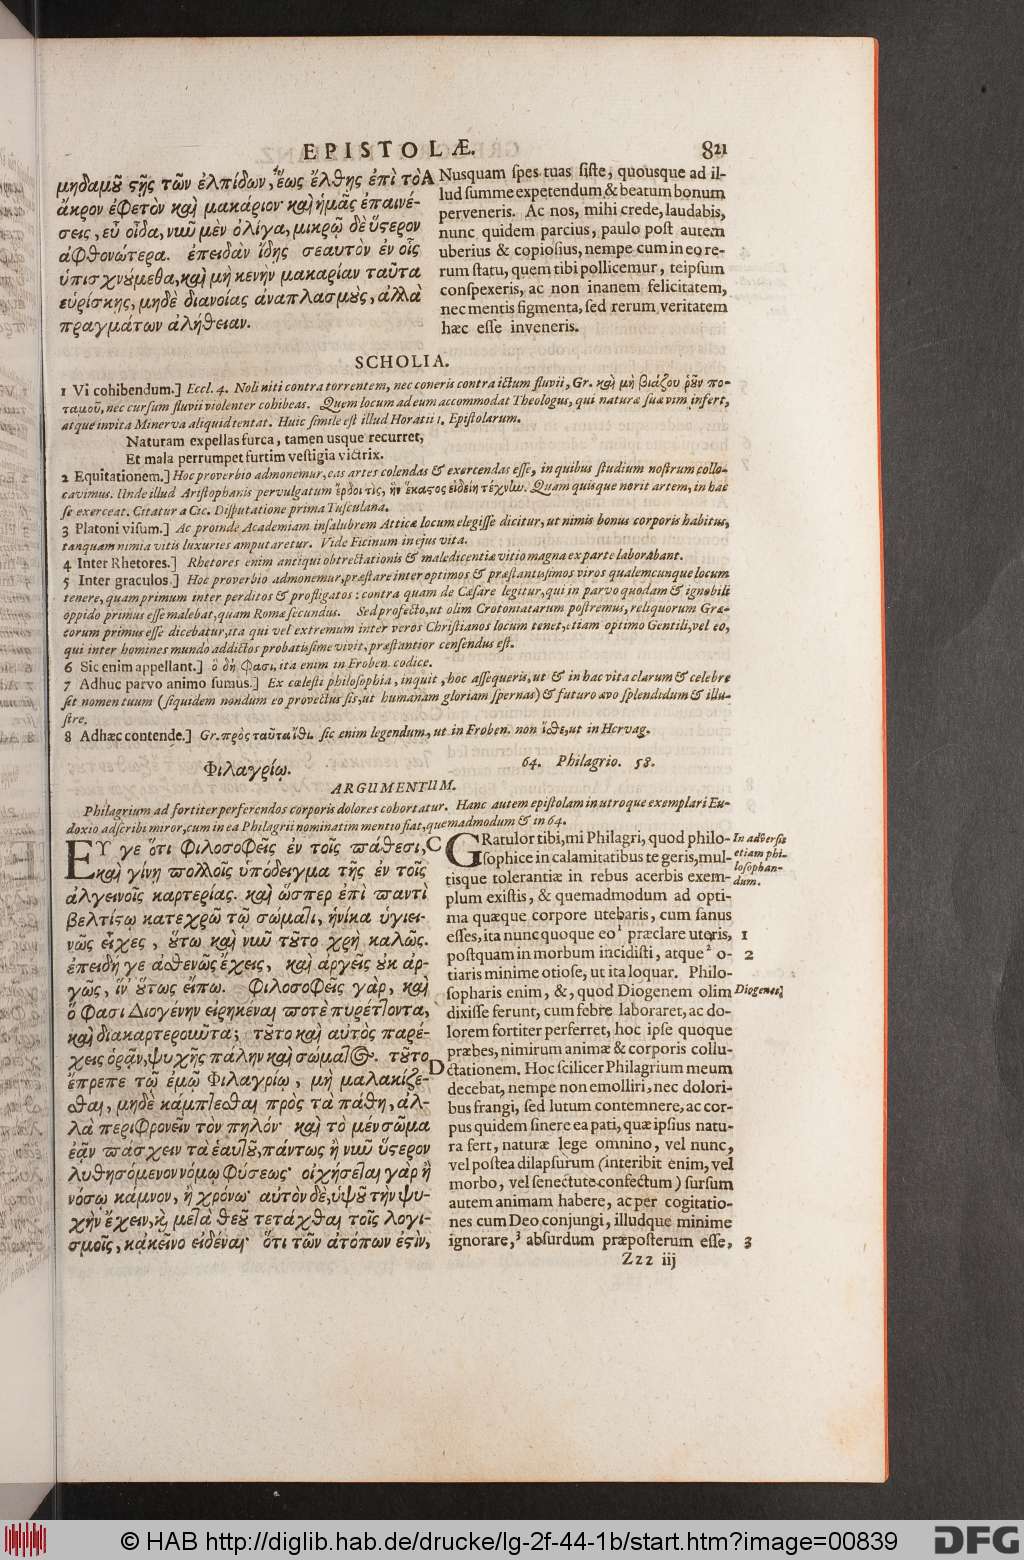 EPISTOLÆ.
821
μηδαμοῦ στῇς τῶν ἐλπίδων, ἕως ἔλθῃς ἐπὶ τὸ A
ἄκρον ἐφετὸν καὶ μακάριον· καὶ ἡμᾶς ἐπαινέ-
σεις, εὖ οἶδα, νῦν μὲν ὀλίγα, μικρῷ δὲ ὕστερον
ἀφθονώτερα. ἐπειδὰν ἴδῃς σεαυτὸν ἐν οἷς
ὑπισχνούμεθα, καὶ μὴ κενὴν μακαρίαν ταῦτα
εὑρίσκῃς, μηδὲ διανοίας ἀναπλασμοὺς, ἀλλὰ
πραγμάτων ἀλήθειαν.
Nusquam spes tuas siste, quousque ad il-
lud summe expetendum & beatum bonum
perveneris. Ac nos, mihi crede, laudabis,
nunc quidem parcius, paulo post autem
uberius & copiosius, nempe cum in eo re-
rum statu, quem tibi pollicemur, teipsum
conspexeris, ac non inanem felicitatem,
nec mentis figmenta, sed rerum veritatem
hæc esse inveneris.
SCHOLIA.
1 Vi cohibendum.] Eccl. 4. Noli niti contra torrentem, nec coneris contra ictum fluvii, Gr. καὶ μὴ βιάζου ῥοῦν πο-
ταμοῦ, nec cursum fluvii violenter cohibeas. Quem locum ad eum accommodat Theologus, qui naturæ suæ vim infert,
atque invita Minerva aliquid tentat. Huic simile est illud Horatii 1. Epistolarum.
Naturam expellas furca, tamen usque recurret,
Et mala perrumpet furtim vestigia victrix.
2 Equitationem.] Hoc proverbio admonemur, eas artes colendas & exercendas esse, in quibus studium nostrum collo-
cavimus. Unde illud Aristophanis pervulgatum ἔρδοι τὶς, ἣν ἕκαστος εἰδείη τέχνην. Quam quisque norit artem, in hac
se exerceat. Citatur a Cic. Disputatione prima Tusculana.
3 Platoni visum.] Ac proinde Academiam insalubrem Atticæ locum elegisse dicitur, ut nimis bonus corporis habitus,
tanquam nimia vitis luxuries amputaretur. Vide Ficinum in ejus vita.
4 Inter Rhetores.] Rhetores enim antiqui obtrectationis & maledicentiæ vitio magna ex parte laborabant.
5 Inter graculos.] Hoc proverbio admonemur, præstare inter optimos & præstantissimos viros qualemcunque locum
tenere, quam primum inter perditos & profligatos: contra quam de Cæsare legitur, qui in parvo quodam & ignobili
oppido primus esse malebat, quam Romæ secundus. Sed profecto, ut olim Crotoniatarum postremus, reliquorum Græ-
corum primus esse dicebatur, ita qui vel extremum inter veros Christianos locum tenet, etiam optimo Gentili, vel eo,
qui inter homines mundo addictos probatissime vivit, præstantior censendus est.
6 Sic enim appellant.] ὃ δή φασι, ita enim in Froben. codice.
7 Adhuc parvo animo sumus.] Ex cælesti philosophia, inquit, hoc assequeris, ut & in hac vita clarum & celebre
sit nomen tuum (siquidem nondum eo provectus sis, ut humanam gloriam spernas) & futuro ævo splendidum & illu-
stre.
8 Adhæc contende.] Gr. πρὸς ταῦτα ἴθι. sic enim legendum, ut in Froben. non ἴσθε, ut in Hervag.
Φιλαγρίῳ.
64. Philagrio. 58.
ARGUMENTUM.
Philagrium ad fortiter perferendos corporis dolores cohortatur. Hanc autem epistolam in utroque exemplari Eu-
doxio adscribi miror, cum in ea Philagrii nominatim mentio fiat, quemadmodum & in 64.
ΕΥ γε ὅτι φιλοσοφεῖς ἐν τοῖς πάθεσι, C
καὶ γίνῃ πολλοῖς ὑπόδειγμα τῆς ἐν τοῖς
ἀλγεινοῖς καρτερίας. καὶ ὥσπερ ἐπὶ παντὶ
βελτίστῳ κατεχρῶ τῷ σώματι, ἡνίκα ὑγιει-
νῶς εἶχες, οὕτω καὶ νῦν τοῦτο χρὴ καλῶς.
ἐπειδή γε ἀσθενῶς ἔχεις, καὶ ἀργεῖς οὐκ ἀρ-
γῶς, ἵν' οὕτως εἴπω. φιλοσοφεῖς γὰρ, καὶ
ὅ φασι Διογένην εἰρηκέναι ποτὲ πυρέττοντα,
καὶ διακαρτεροῦντα; τοῦτο καὶ αὐτὸς παρέ-
χεις ὁρᾷν, ψυχῆς πάλην καὶ σώματος. τοῦτο D
ἔπρεπε τῷ ἐμῷ Φιλαγρίῳ, μὴ μαλακίζε-
σθαι, μηδὲ κάμπτεσθαι πρὸς τὰ πάθη, ἀλ-
λὰ περιφρονεῖν τὸν πηλόν· καὶ τὸ μὲν σῶμα
ἐᾷν πάσχειν τὰ ἑαυτοῦ, πάντως ἢ νῦν ὕστερον
λυθησόμενον νόμῳ φύσεως· οἰχήσεται γὰρ ἢ
νόσῳ κάμνον, ἢ χρόνῳ· αὐτὸν δὲ, ὑψοῦ τὴν ψυ-
χὴν ἔχειν, καὶ μετὰ θεοῦ τετάχθαι τοῖς λογι-
σμοῖς, κἀκεῖνο εἰδέναι· ὅτι τῶν ἀτόπων ἐστὶν,
GRatulor tibi, mi Philagri, quod philo-
sophice in calamitatibus te geris, mul-
tisque tolerantiæ in rebus acerbis exem-
plum existis, & quemadmodum ad opti-
ma quæque corpore utebaris, cum sanus
esses, ita nunc quoque eo¹ præclare uteris, 1
postquam in morbum incidisti, atque² o- 2
tiaris minime otiose, ut ita loquar. Philo-
sopharis enim, &, quod Diogenem olim
dixisse ferunt, cum febre laboraret, ac do-
lorem fortiter perferret, hoc ipse quoque
præbes, nimirum animæ & corporis collu-
ctationem. Hoc scilicer Philagrium meum
decebat, nempe non emolliri, nec dolori-
bus frangi, sed lutum contemnere, ac cor-
pus quidem sinere ea pati, quæ ipsius natu-
ra fert, naturæ lege omnino, vel nunc,
vel postea dilapsurum (interibit enim, vel
morbo, vel senectute confectum) sursum
autem animam habere, ac per cogitatio-
nes cum Deo conjungi, illudque minime
ignorare,³ absurdum præposterum esse, 3
In adversis
etiam phi-
losophan-
dum.
Diogenes.
Zzz iij
© HAB http://diglib.hab.de/drucke/lg-2f-44-1b/start.htm?image=00839
DFG